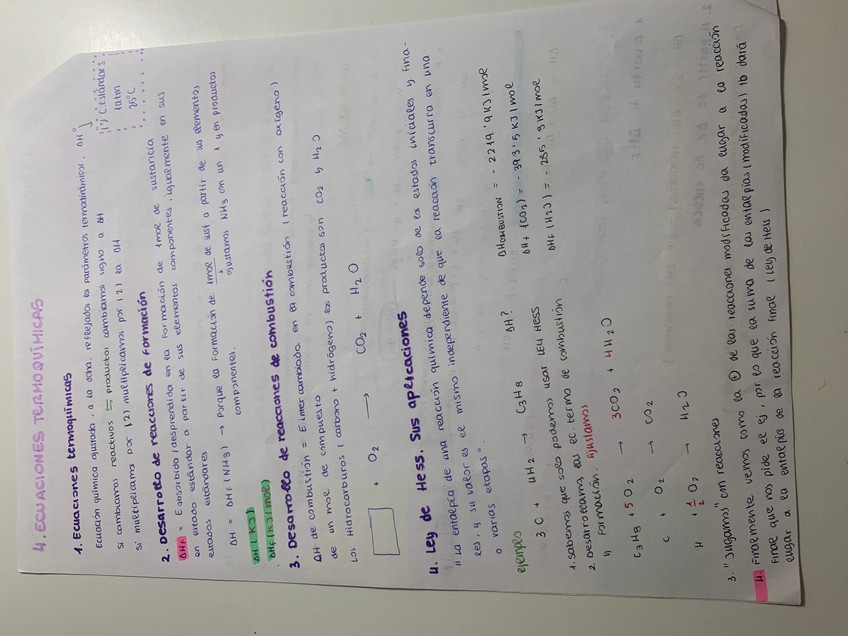 4. ECUACIONES TERMOQUÍMICAS
1. Ecuaciones termoquímicas
Ecuación química ajustada, a la dcha. reflejados los parámetros termodinámicos, ΔH°
(°) C. estándars
1atm
25°C
Si cambiamos reactivos ⇆ productos cambiamos signo a ΔH
Si multiplicamos por (2) multiplicamos por (2) la ΔH
2. Desarrollo de reacciones de formación
ΔHf = E absorbida/desprendida en la formación de 1mol de sustancia
en estado estándar a partir de sus elementos componentes, igualmente en sus
estados estándares
ΔH = ΔHf (NH3) → Porque la formación de 1mol de sust a partir de sus elementos
componentes.
ajustamos NH3 con un 1 y en productos
ΔH (KJ)
ΔHf (KJ/mol)
3. Desarrollo de reacciones de combustión
ΔH de combustión = E intercambiada en la combustión (reacción con oxígeno)
de un mol de compuesto
Los Hidrocarburos (carbono + hidrógeno) los productos son CO2 y H2O
+ O2 → CO2 + H2O
4. Ley de Hess. Sus aplicaciones
"La entalpía de una reacción química depende solo de los estados iniciales y fina-
les, y su valor es el mismo independiente de que la reacción transcurra en una
o varias etapas".
ejemplo
3C + 4H2 → C3H8 ΔH?
ΔHCOMBUSTIÓN = -2219'9 KJ/mol
ΔHf (CO2) = -393'5 KJ/mol
ΔHf (H2O) = -285'8 KJ/mol
1. Sabemos que solo podemos usar LEY HESS
2. Desarrollamos las ec termo de combustión
y formación. Ajustamos
C3H8 + 5O2 → 3CO2 + 4H2O
C + O2 → CO2
H 1/2 O2 → H2O
3. "Jugamos" con reacciones
4. Finalmente vemos como la + de las reacciones modificadas da lugar a la reacción
final que nos pide el ej, por lo que la suma de las entalpías (modificadas) tb dará
lugar a la entalpía de la reacción final (Ley de Hess)